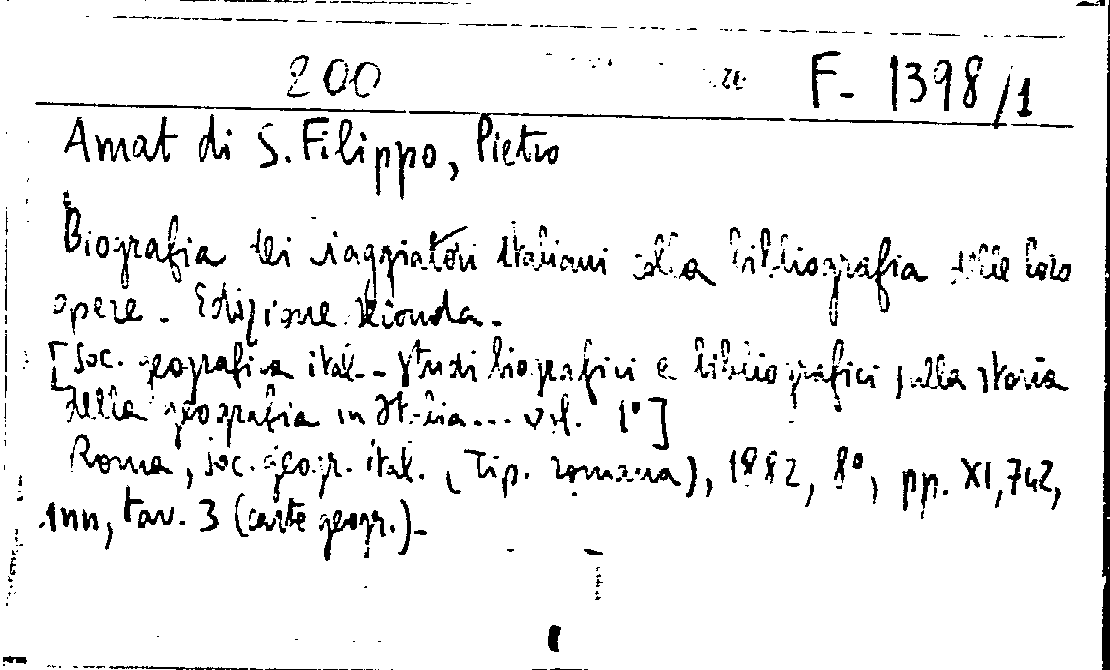 200 F- 1398/1
Amat di S. Filippo, Pietro
Biografia dei viaggiatori italiani colla bibliografia delle loro
opere. Edizione seconda.
[Soc. geografica ital. - Studi biografici e bibliografici sulla storia
della geografia in Italia... vol. 1°]
Roma, soc. geogr. ital. (Tip. romana), 1882, 8°, pp. XI, 742,
1nn, tav. 3 (carte geogr.)-